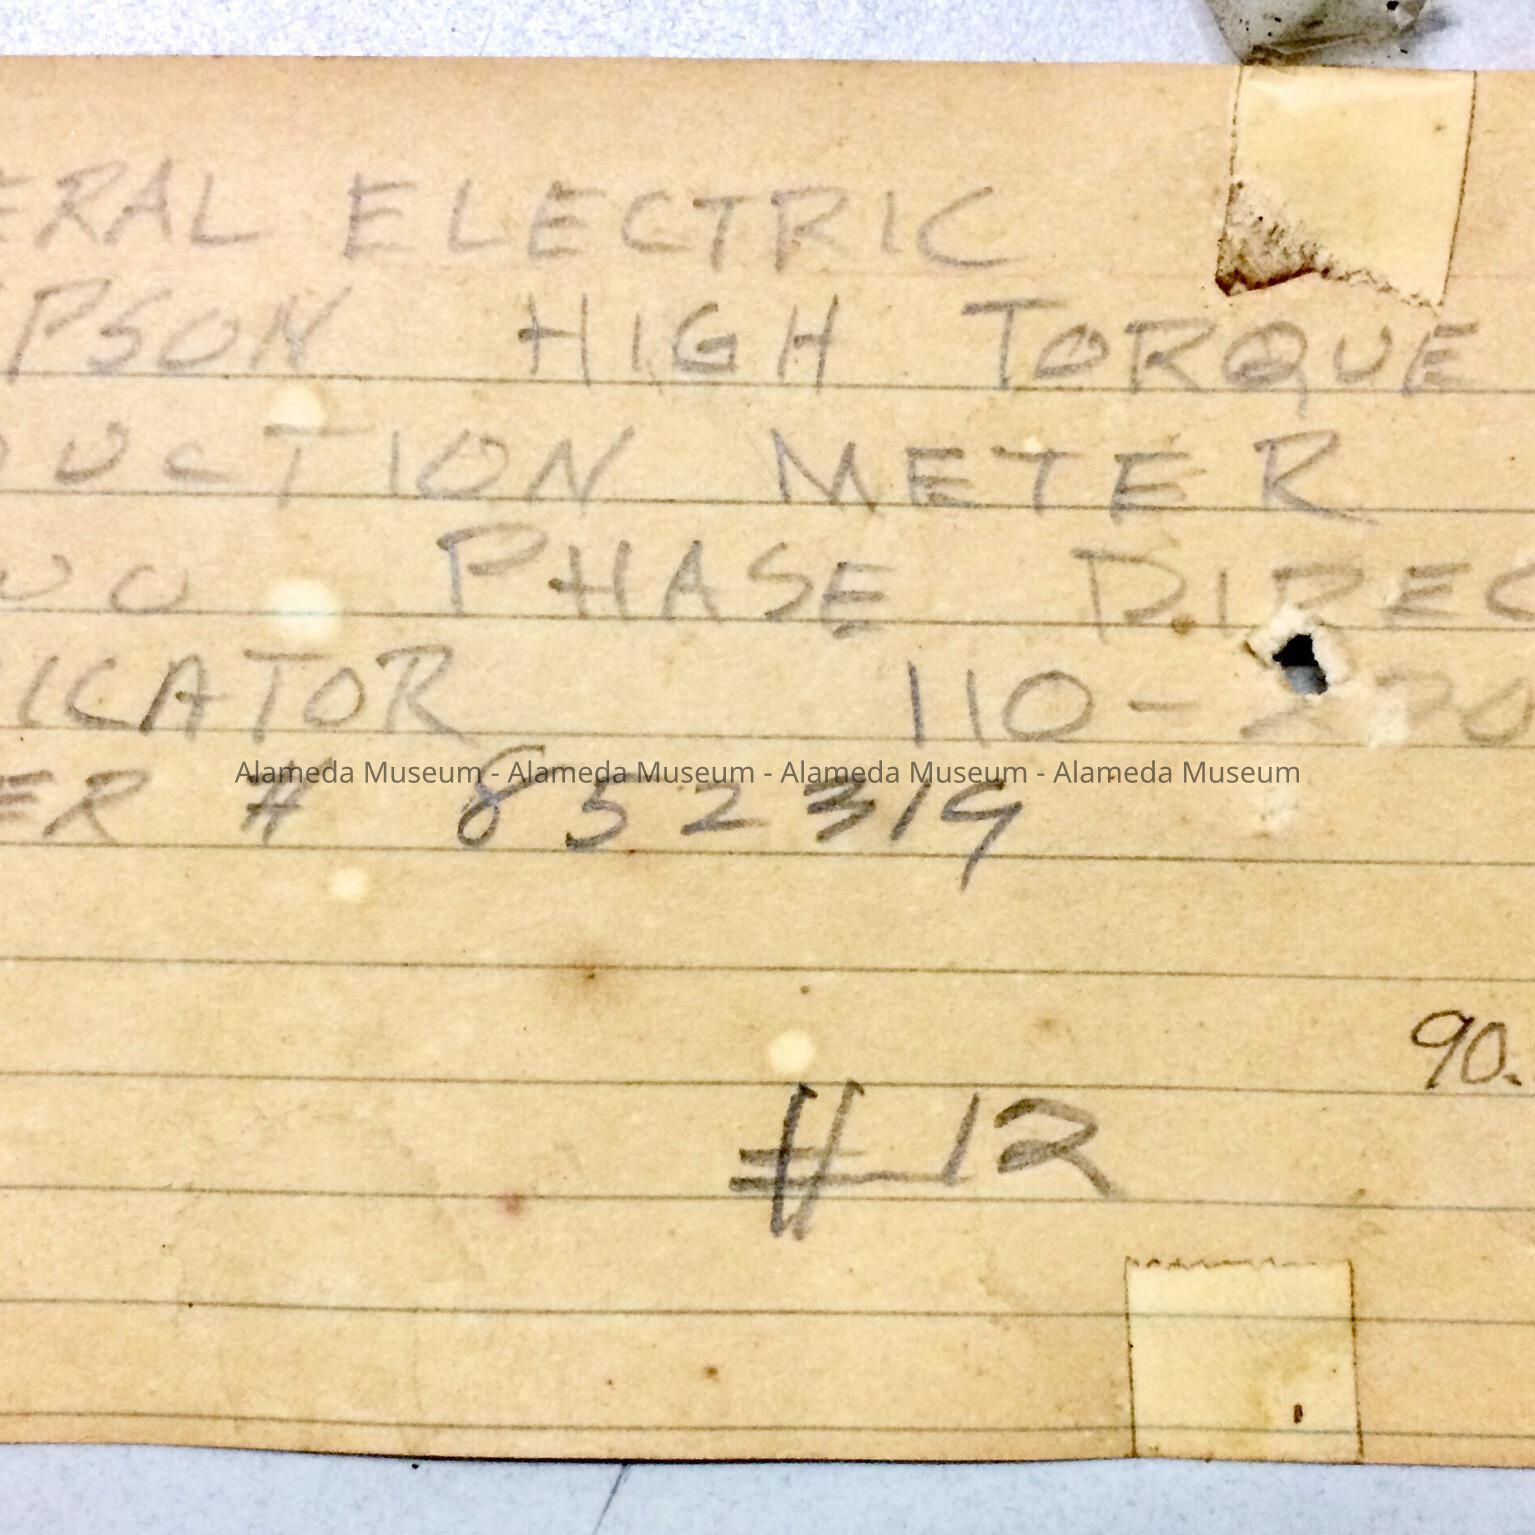 ERAL ELECTRIC
PSON HIGH TORQUE
DUCTION METER
PHASE DIREC
ICATOR 110-220
Alameda Museum - Alameda Museum - Alameda Museum - Alameda Museum
ER # 852319
90.
# 12